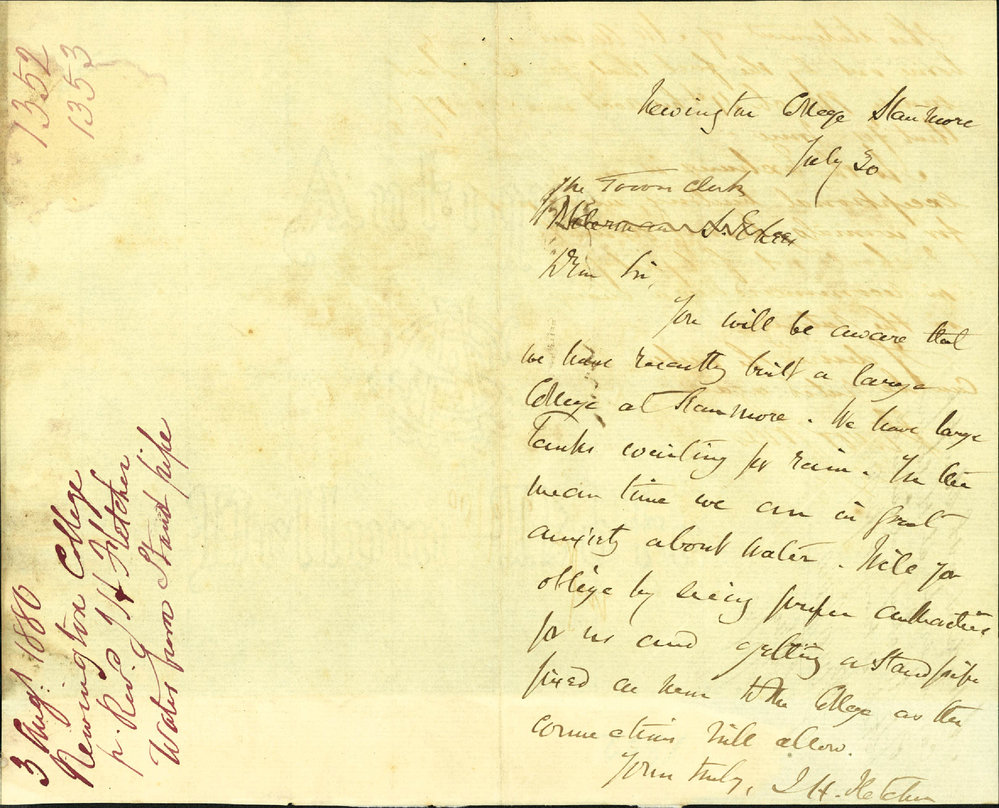 1352
1353
3 Augt 1880
Newington College
p. Rev. J H Fletcher
Water from Stand pipe
Newington College Stanmore
July 30
The Town Clerk
Dear Sir,
You will be aware that
we have recently built a large
College at Stanmore. We have large
Tanks waiting for rain. In the
mean time we are in great
anxiety about water. Will you
oblige by seeing proper
for us and getting a standpipe
fixed as near to the College as the
connection will allow.
Yours truly, J H. Fletcher